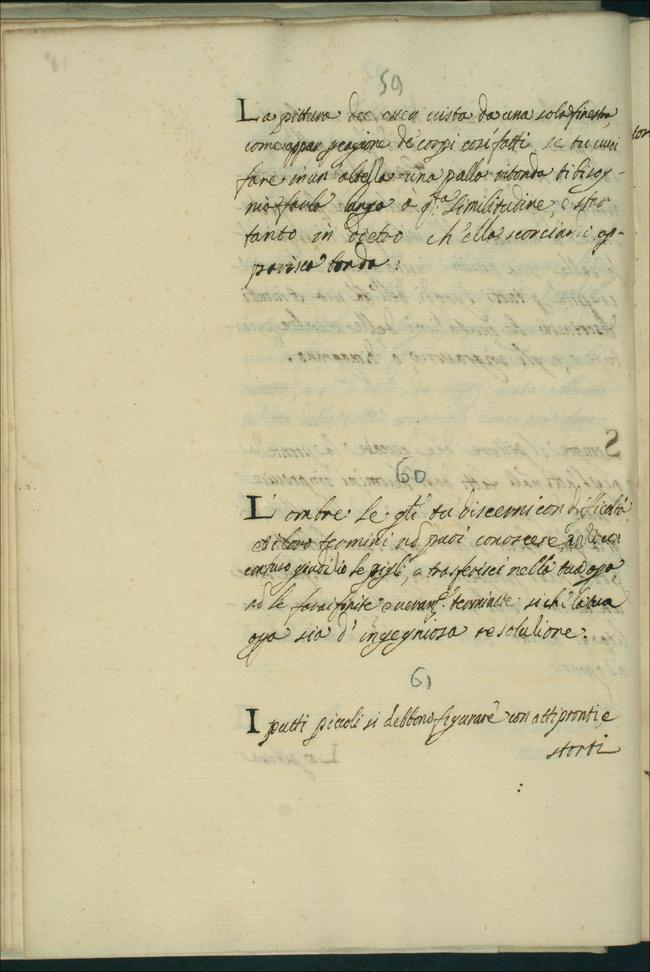 59
La pittura dee esser vista da una sola finestra
come appar p cagione de' corpi cosi fatti se tu vuoi
fare in un altezza una palla ritonda ti bisog-
nia farla lunga a q.ta similitudine, e star
tanto in dietro ch'ella scorciando ap-
parisca tonda:
60
L'ombre le qli tu discerni con difficoltà
et i loro termini nō puoi conoscere, anzi con
confuso giuditio le pigli, e trasferisci nella tua opa,
nō le farai finite o veram.e terminate si ch'la tua
opa sia d'ingegniosa resolutione.
61
I putti piccoli si debbono figurare con atti pronti, e
storti